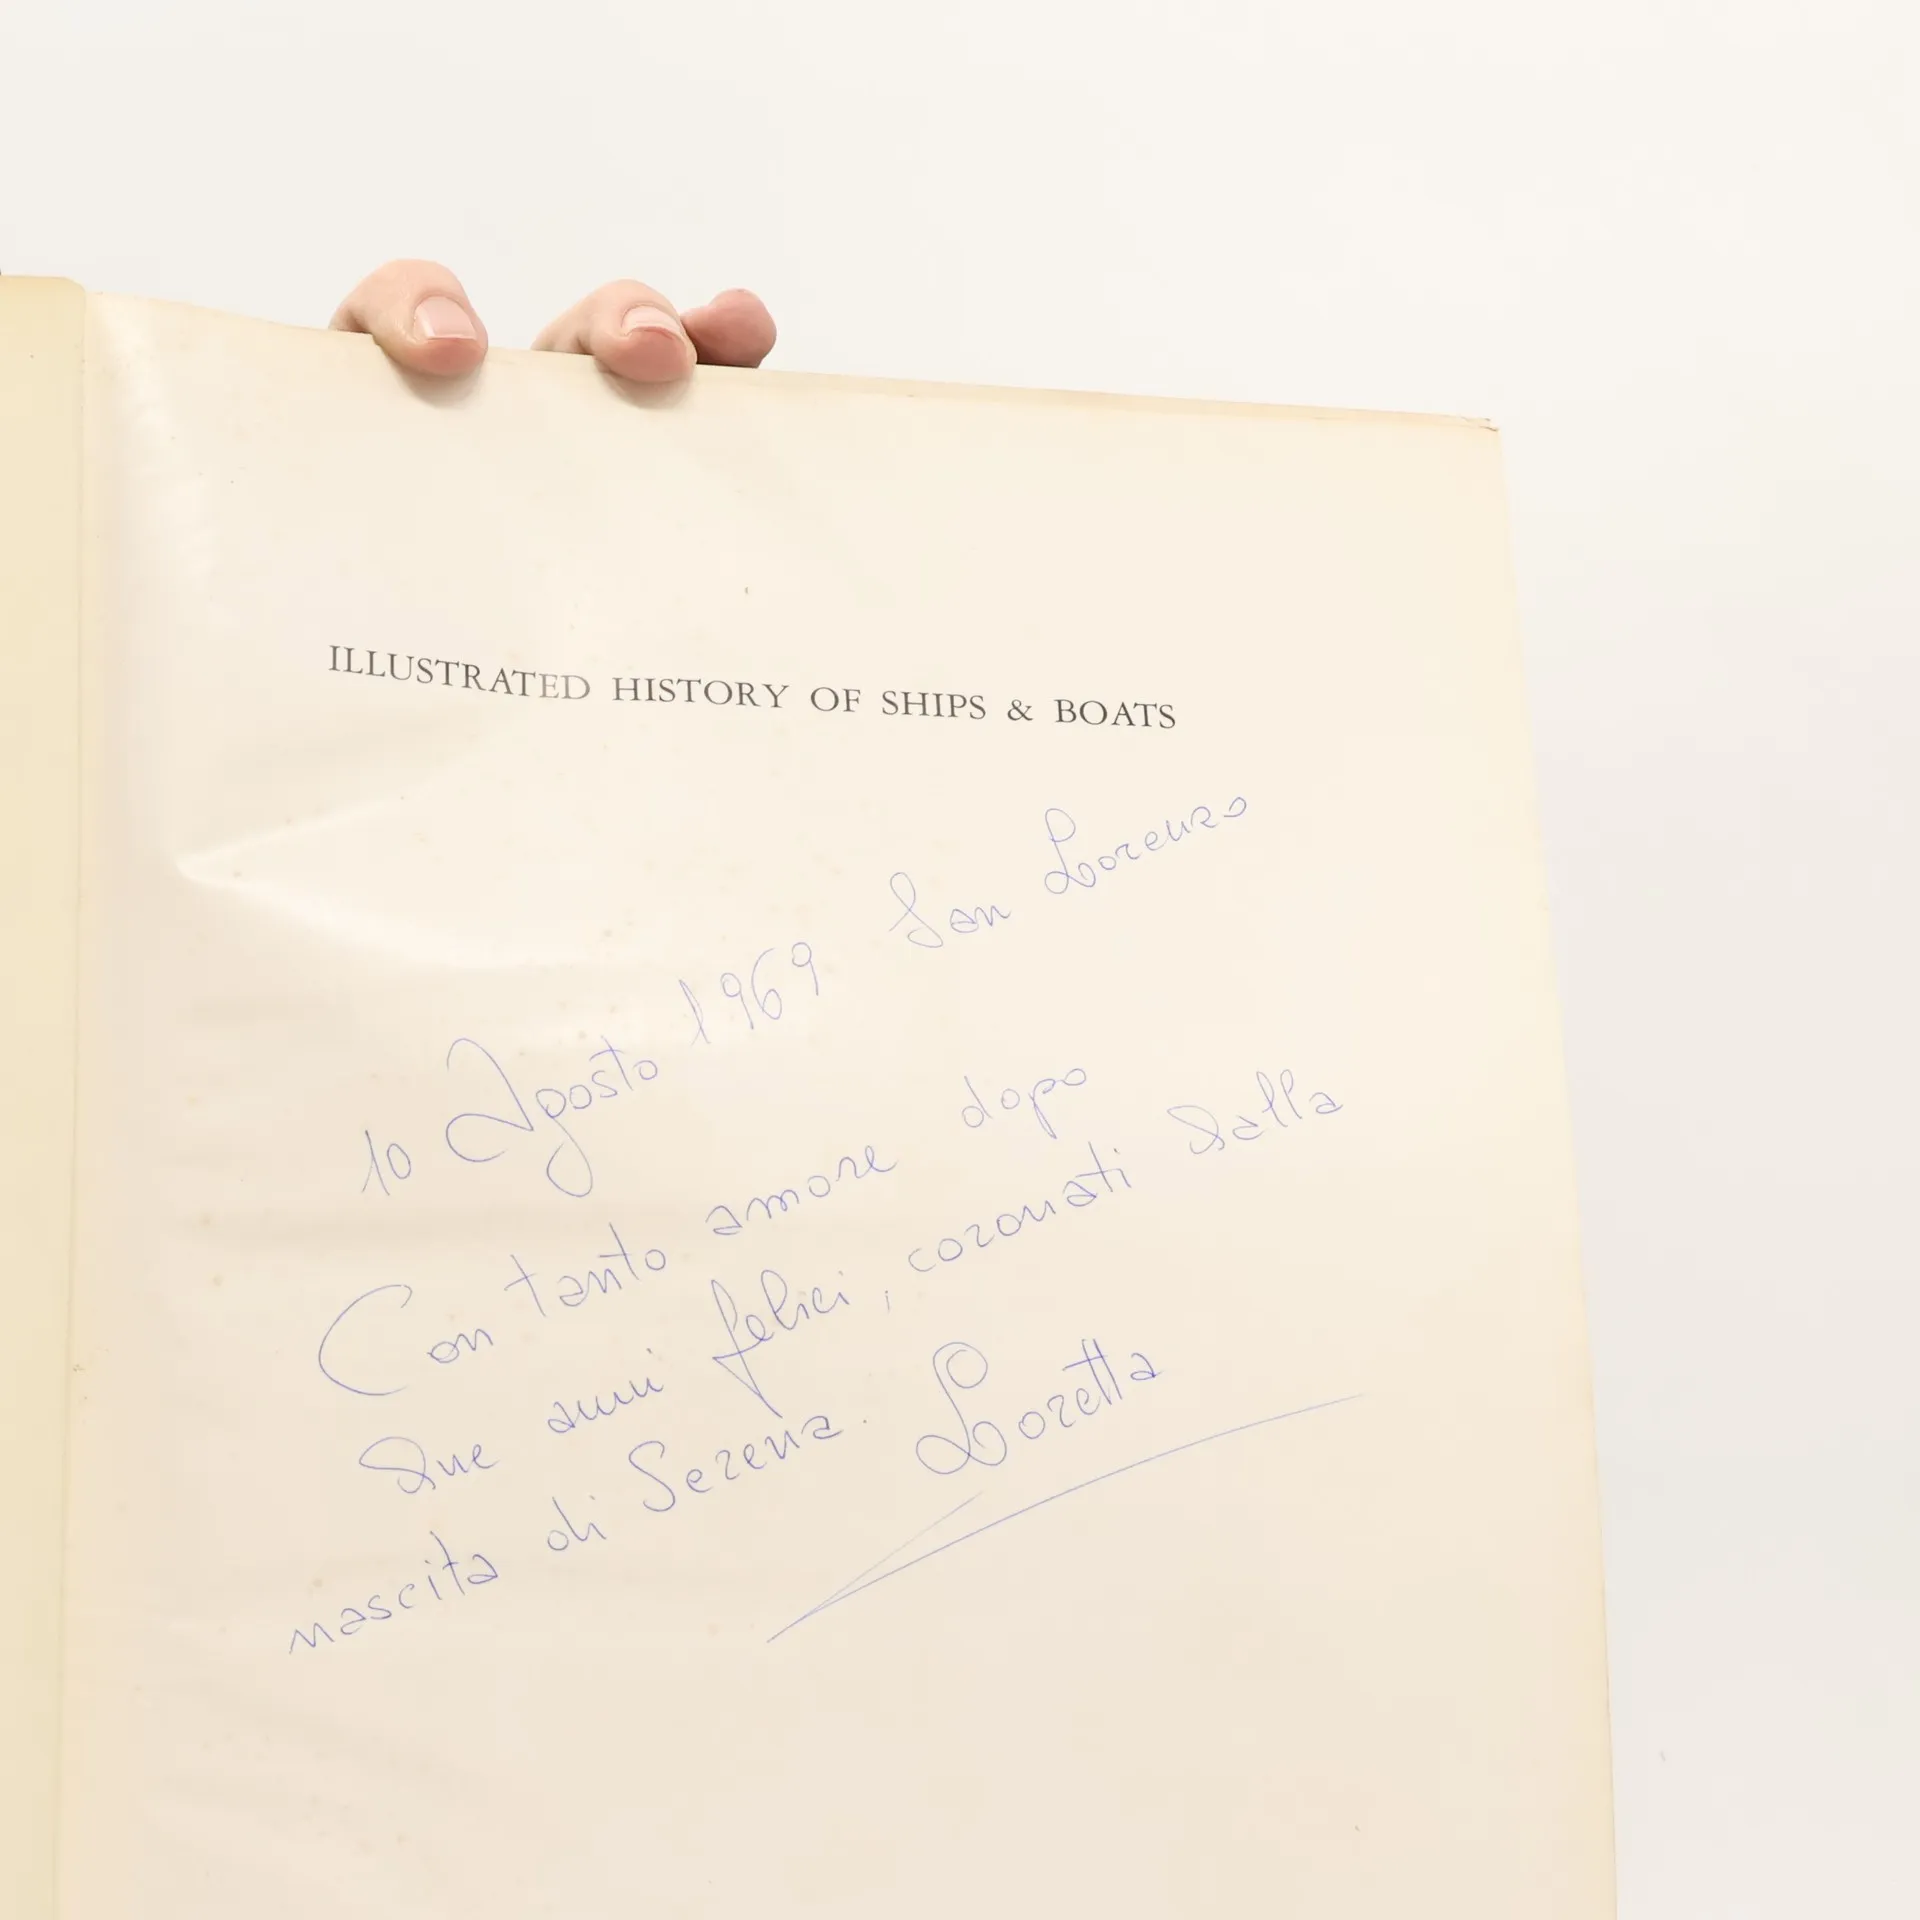 ILLUSTRATED HISTORY OF SHIPS & BOATS
10 Agosto 1969 San Lorenzo
Con tanto amore dopo
due anni felici, coronati dalla
nascita di Serena. Loretta